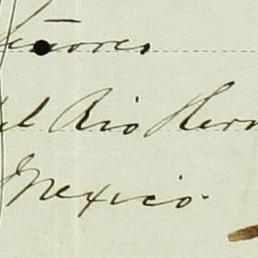 Señores
del Rio Herm
Mexico.